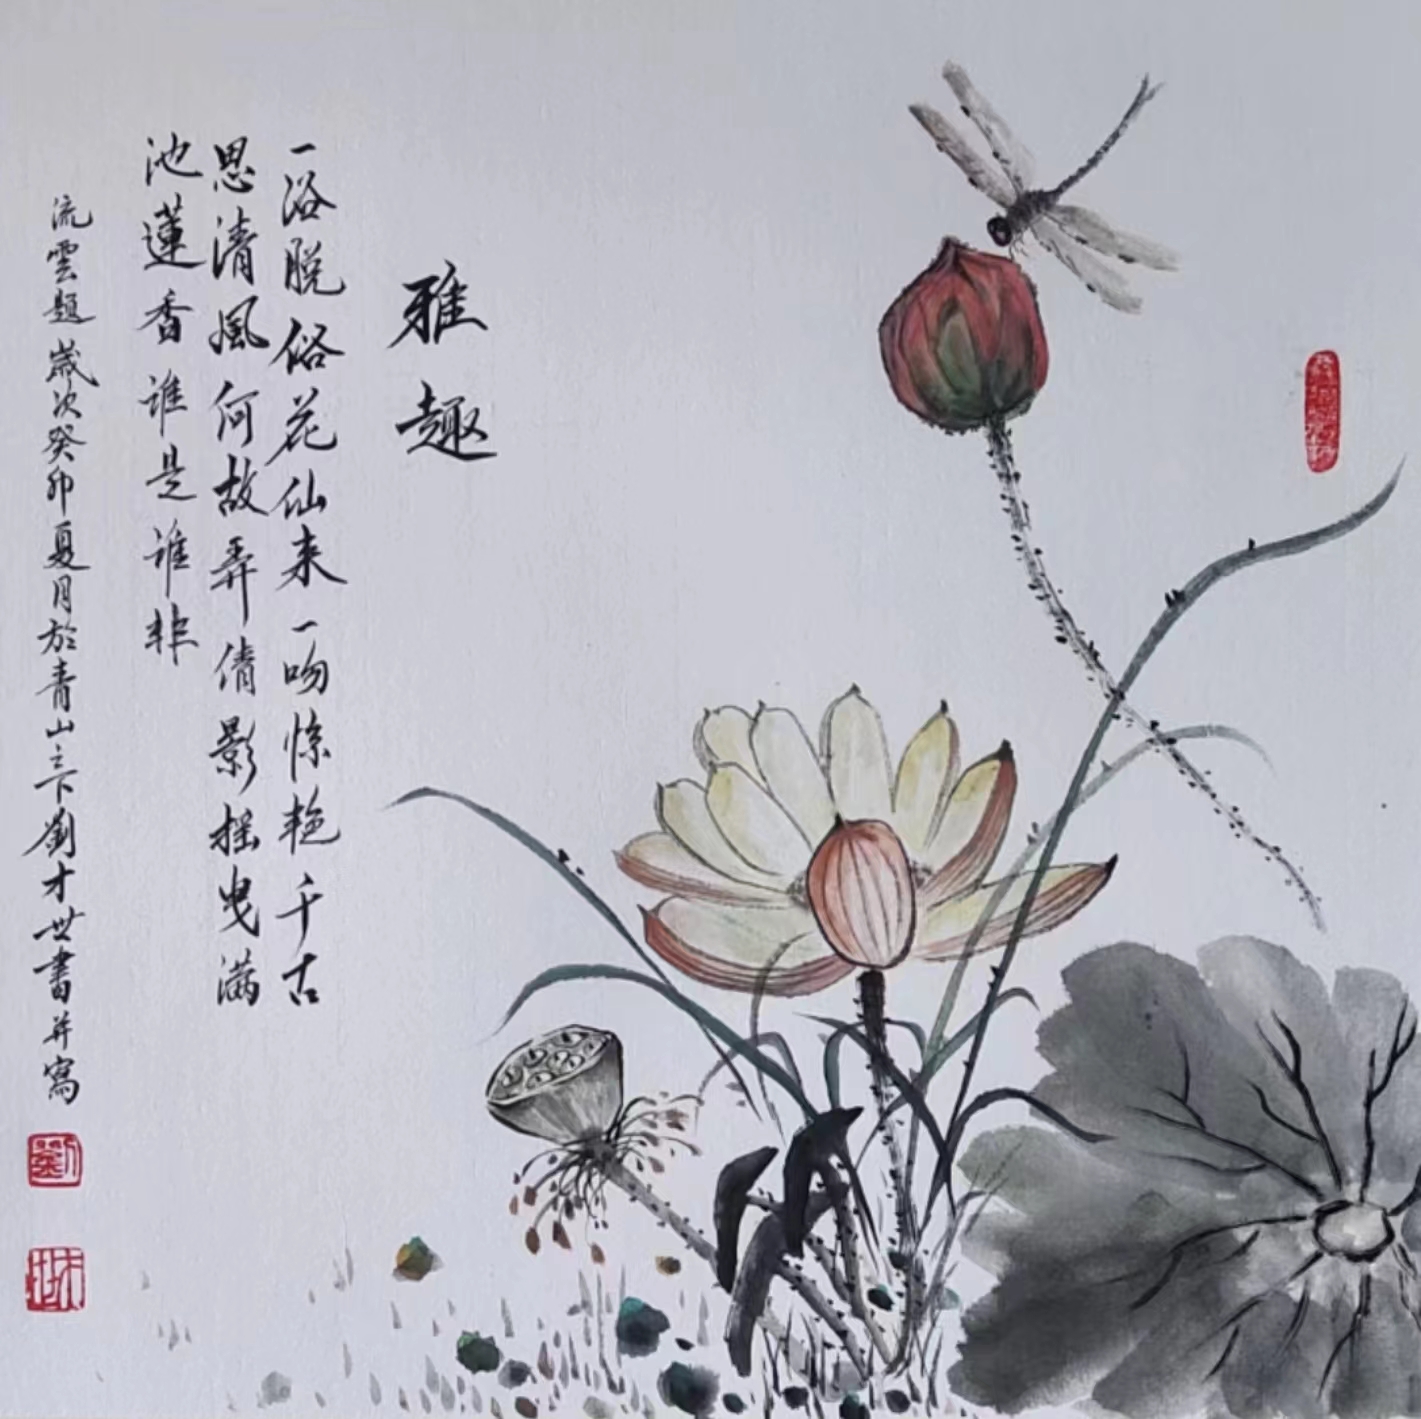 雅趣
一浴脱俗花仙来一吻惊艳千古
思清風何故弄倩影摇曳满
池蓮香誰是誰非
流雲題歲次癸卯夏月於青山之下劉才世書并寫
劉